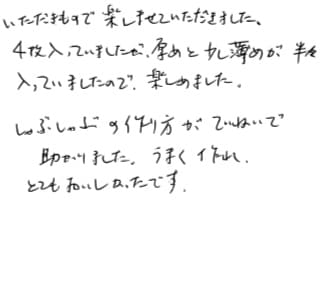 いただきもので楽しませていただきました、
4枚入っていましたが、厚めと少し薄めが半々
入っていましたので、楽しめました。
しゃぶしゃぶの作り方がていねいで
助かりました。うまく作れ、
とてもおいしかったです。